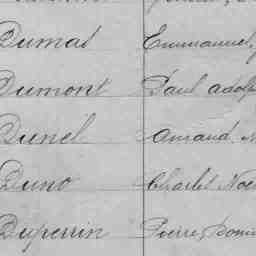 Dumas Emmanuel,
Dumont Paul adolp
Dunel Amand
Duno Charles Noë
Duperrin Pierre, Domi